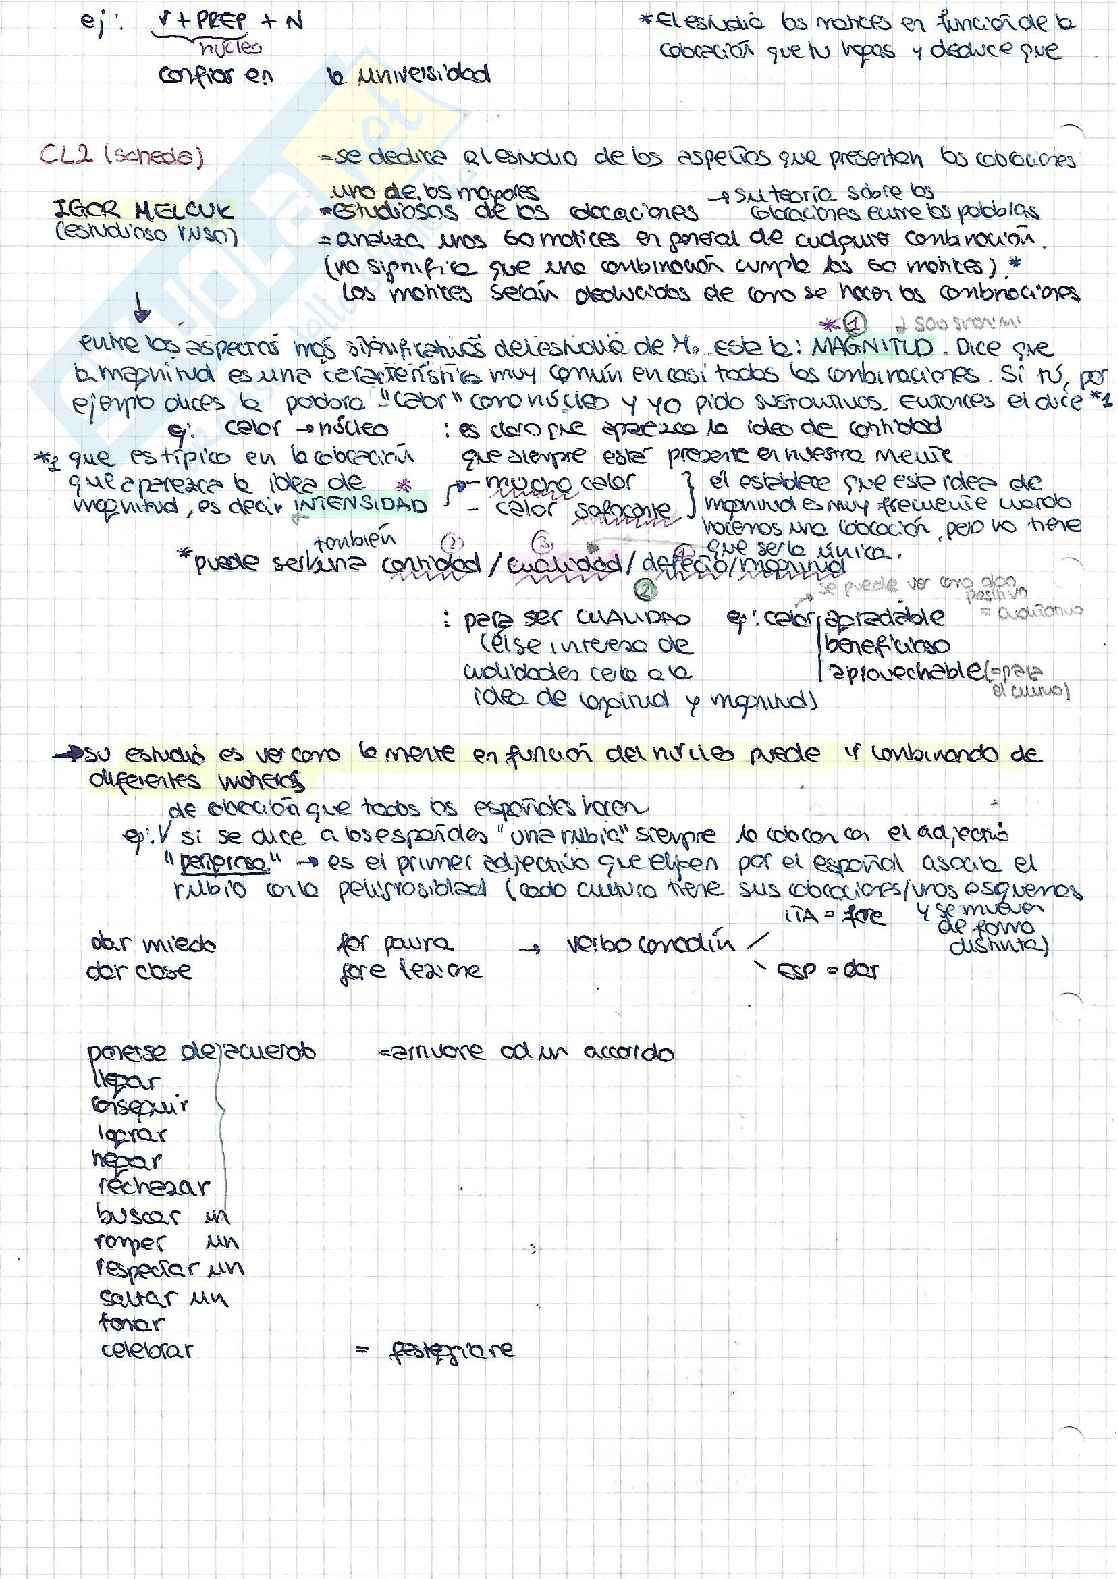 ej: V + PREP + N
núcleo
confiar en la universidad
*El estudia los matices en función de la
colocación que tu hagas y deduce que
CL2 (scheda)
= se dedica al estudio de los aspectos que presentan las colocaciones
uno de los mayores → su teoría sobre las
IGOR MELCUK = estudiosos de las colocaciones colocaciones entre las palabras
(estudioso ruso) = analiza unos 60 matices en general de cualquier combinación.
(no significa que una combinación cumpla los 60 matices).*
Los matices serán deducidos de como se hacen las combinaciones
*① sono sinonimi
entre los aspectos más significativos del estudio de M. está la: MAGNITUD. Dice que
la magnitud es una característica muy común en casi todas las combinaciones. Si tú, por
ejemplo dices la palabra "calor" como núcleo y yo pido sustantivos. Entonces el dice *1
ej: calor → núcleo : es claro que aparezca la idea de cantidad
*1 que es típico en la colocación que siempre está presente en nuestra mente
que aparezca la idea de * - mucho calor } el establece que esta idea de
magnitud, es decir INTENSIDAD - calor sofocante magnitud es muy frecuente cuando
hacemos una colocación, pero no tiene
también ② ③ ① que ser la única.
*puede ser una cantidad / cualidad / defecto / magnitud
②
se puede ver como algo
positivo
: para ser CUALIDAD ej: calor agradable = cualitativo
(él se interesa de beneficioso
cualidades cerca a la aprovechable (= para
el cuerpo)
idea de longitud y magnitud)
→ su estudio es ver como la mente en función del núcleo puede ir combinando de
diferentes maneras
de colocación que todos los españoles hacen
ej: V si se dice a los españoles "una rubia" siempre la colocan con el adjectivo
"peligrosa" → es el primer adjectivo que eligen por el español asocia el
rubio con la peligrosidad (cada cultura tiene sus colocaciones/unos esquemas
ITA = fare y se mueven
de forma
dar miedo far paura → verbo comodín distinta)
dar clase fare lezione ESP = dar
ponerse de acuerdo = arrivare ad un accordo
llegar
conseguir
lograr
negar
rechazar
buscar un
romper un
respectar un
saltar un
tomar
celebrar = festeggiare